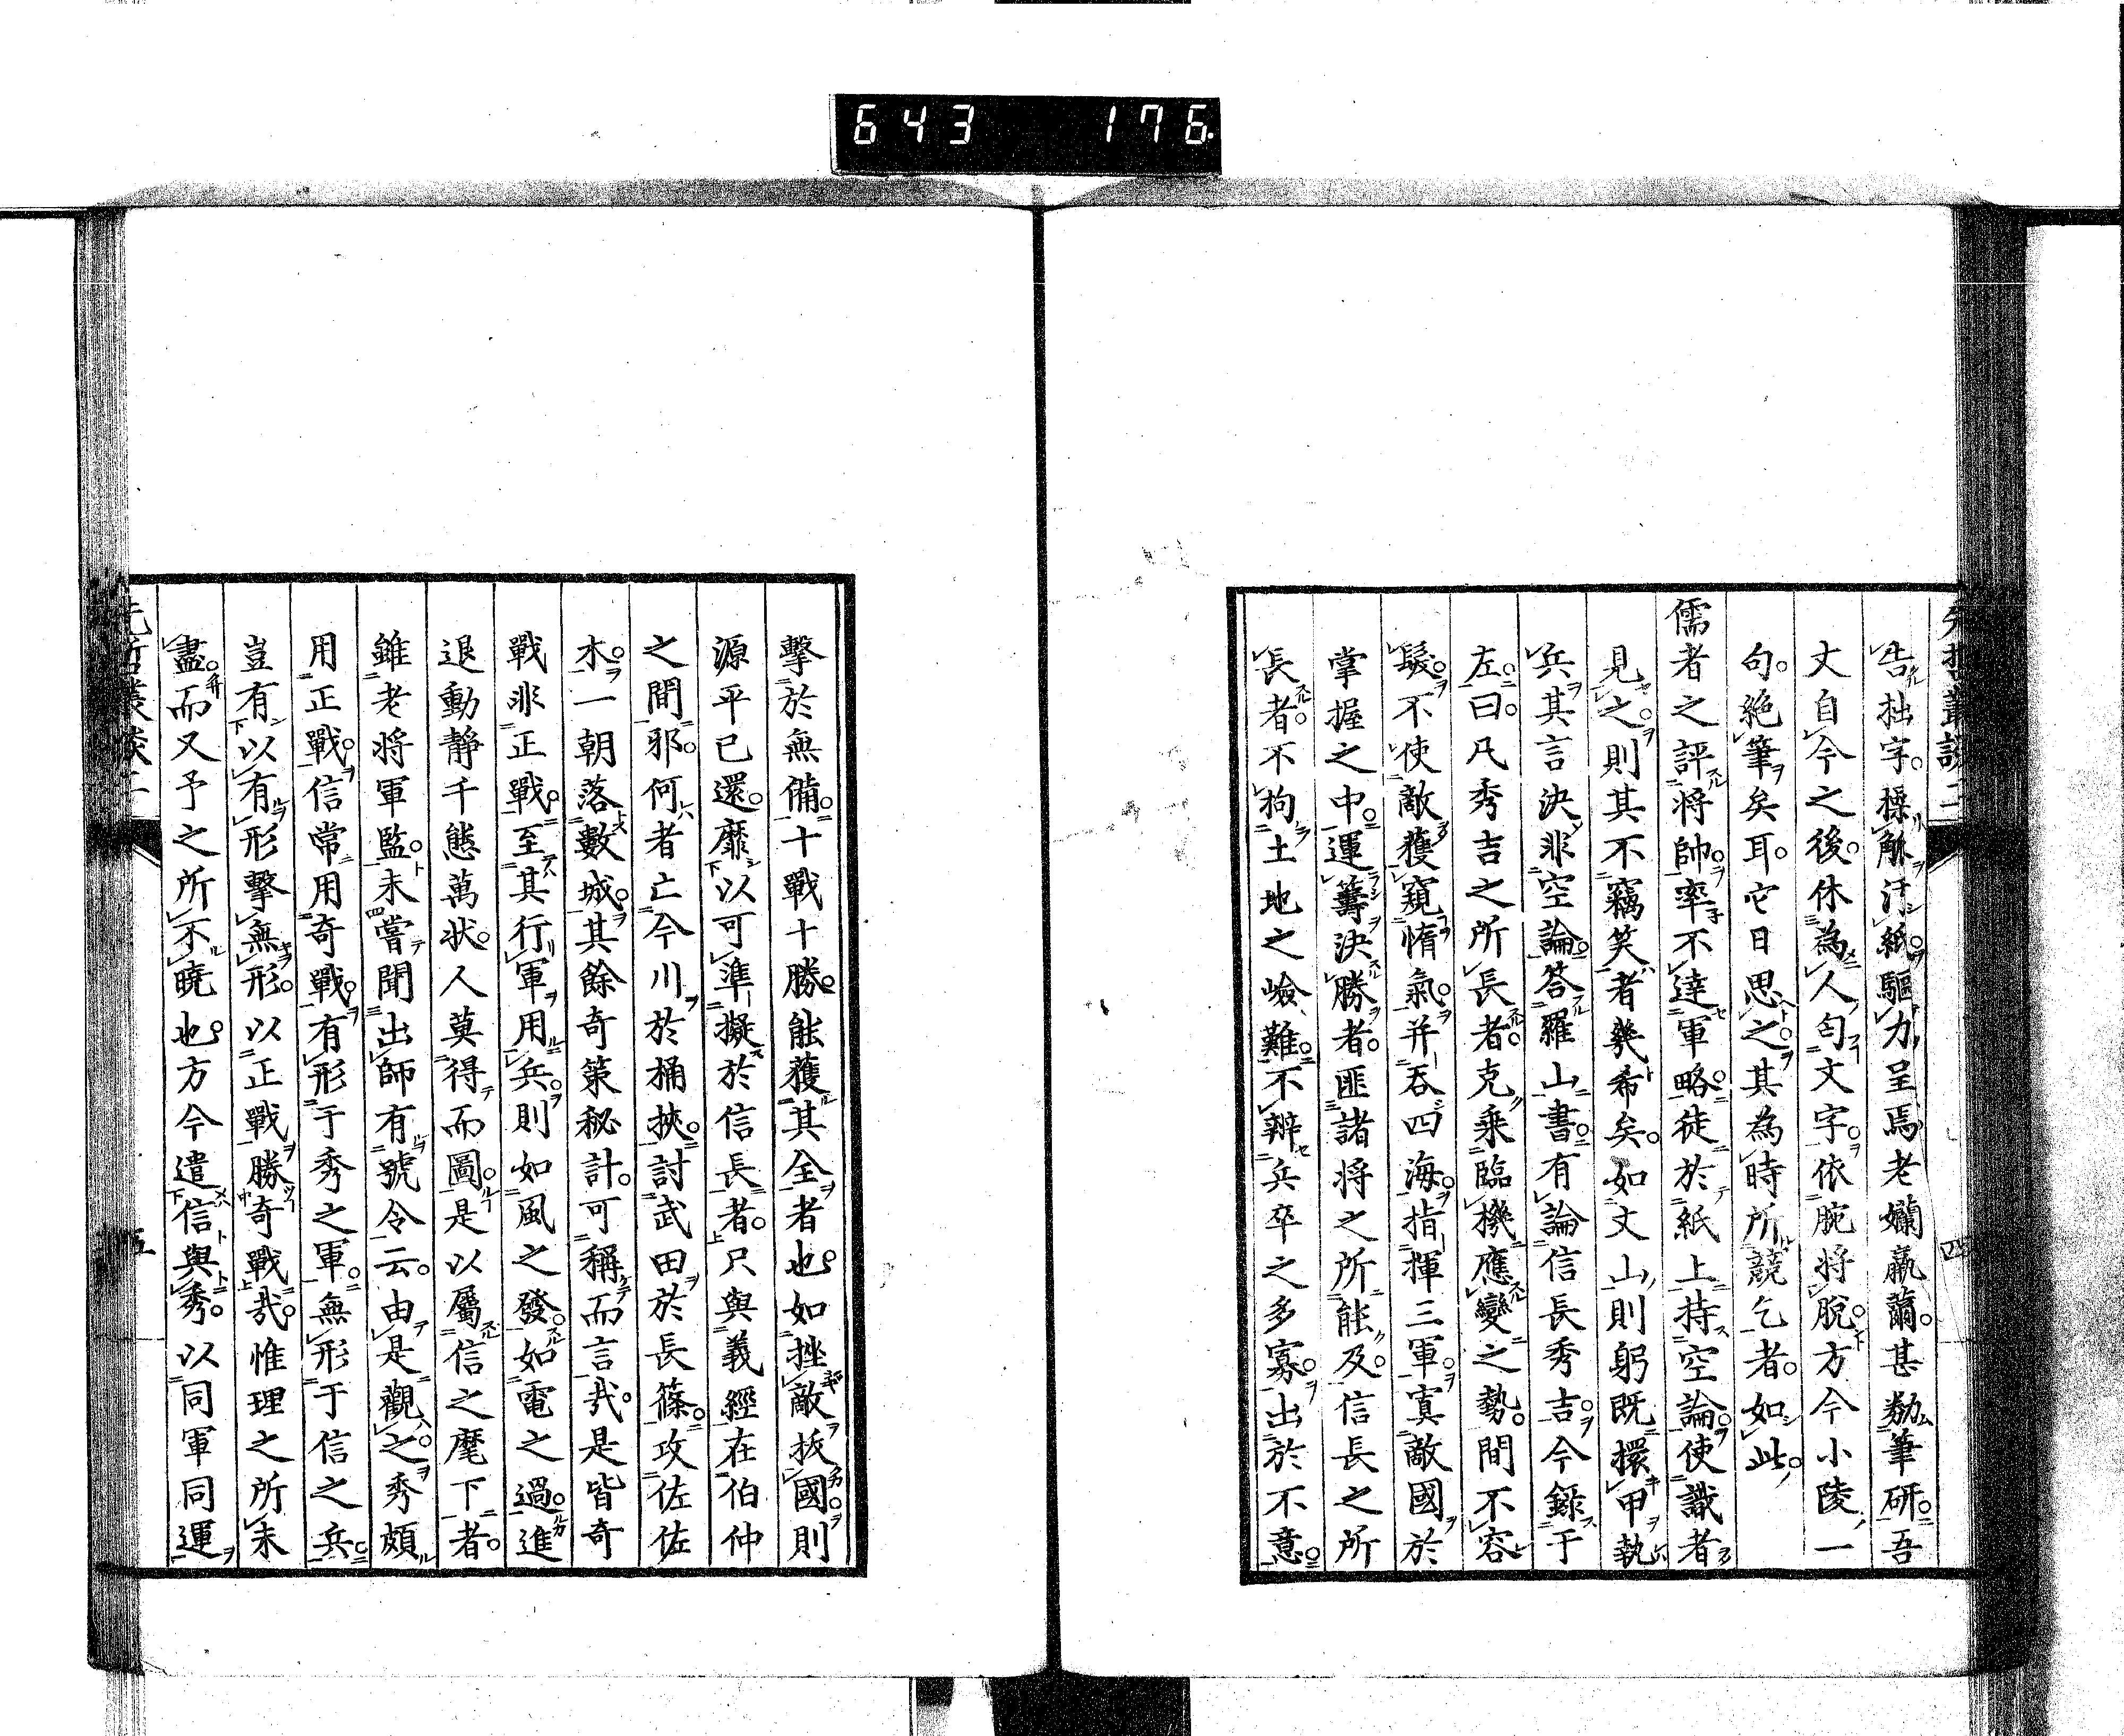 643 176
先哲叢談二
四
告拙字。操觚汙紙。驅力呈焉老孏羸薾。甚勌筆研。吾
丈自今之後。休為人匄文字。依腕将脫。方今小陵一
句。絕筆矣耳。它日思之。其為時所競乞者。如此。
儒者之評将帥。率不達軍略。徒於紙上持空論。使識者
見之。則其不竊笑者幾希矣。如丈山則躬既擐甲執
兵其言決非空論。答羅山書。有論信長秀吉。今錄于
左。曰。凡秀吉之所長者。克乘臨機應變之勢。間不容
髮。不使敵獲窺惰氣。并吞四海。指揮三軍。寘敵國於
掌握之中。運籌決勝者。匪諸将之所能及。信長之所
長者。不拘土地之嶮難。不辨兵卒之多寡。出於不意。
擊於無備。十戰十勝。能獲其全者也。如挫敵拔國。則
源平已還。靡以可準擬於信長者。只與義經在伯仲
之間邪。何者亡今川於桶挾。討武田於長篠。攻佐佐
木。一朝落數城。其餘奇策秘計。可稱而言哉。是皆奇
戰非正戰。至其行軍用兵。則如風之發。如電之過。進
退動靜千態萬状。人莫得而圖。是以屬信之麾下者。
雖老将軍監。未嘗聞出師有號令云。由是觀之。秀頗
用正戰。信常用奇戰。有形于秀之軍。無形于信之兵。
豈有以有形擊無形。以正戰勝奇戰哉。惟理之所未
盡。而又予之所不曉也。方今遣信與秀。以同軍同運
先哲叢談二
五